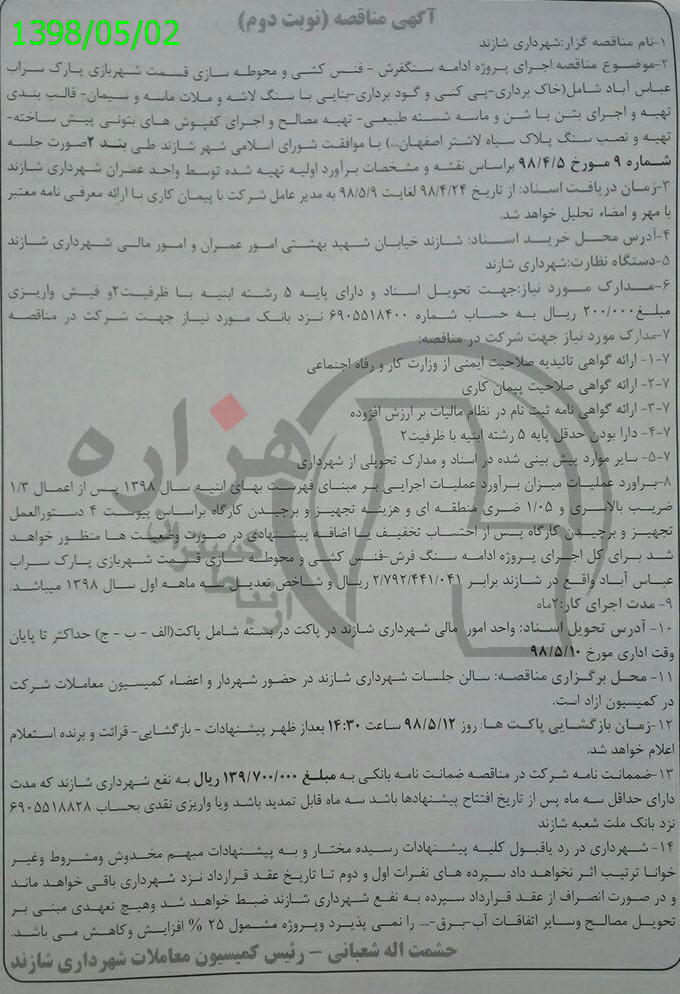 آگهی مناقصه (نوبت دوم)
1398/05/02
۱-نام مناقصه گزار:شهرداری شازند
۲-موضوع مناقصه:اجرای پروژه ادامه سنگفرش - فنس کشی و محوطه سازی قسمت شهربازی پارک سراب
عباس آباد شامل(خاک برداری-پی کنی و گود برداری-بنایی با سنگ لاشه و ملات ماسه و سیمان- قالب بندی
تهیه و اجرای بتن با شن و ماسه شسته طبیعی- تهیه مصالح و اجرای کفپوش های بتونی پیش ساخته-
تهیه و نصب سنگ پلاک سیاه لاشتر اصفهان...) با موافقت شورای اسلامی شهر شازند طی بند ۲صورت جلسه
شماره ۹ مورخ ۹۸/۴/۵ براساس نقشه و مشخصات برآورد اولیه تهیه شده توسط واحد عمران شهرداری شازند
۳-زمان دریافت اسناد: از تاریخ ۹۸/۴/۲۴ لغایت ۹۸/۵/۹ به مدیر عامل شرکت یا پیمان کاری با ارائه معرفی نامه معتبر
با مهر و امضاء تحلیل خواهد شد.
۴-آدرس محل خرید اسناد: شازند خیابان شهید بهشتی امور عمران و امور مالی شهرداری شازند
۵-دستگاه نظارت:شهرداری شازند
۶-مدارک مورد نیاز:جهت تحویل اسناد و دارای پایه ۵ رشته ابنیه با ظرفیت۲و فیش واریزی
مبلغ۲۰۰/۰۰۰ ریال به حساب شماره ۶۹۰۵۵۱۸۴۰۰ نزد بانک مورد نیاز جهت شرکت در مناقصه
۷-مدارک مورد نیاز جهت شرکت در مناقصه:
۷-۱- ارائه گواهی تائیدیه صلاحیت ایمنی از وزارت کار و رفاه اجتماعی
۷-۲- ارائه گواهی صلاحیت پیمان کاری
۷-۳- ارائه گواهی نامه ثبت نام در نظام مالیات بر ارزش افزوده
۷-۴- دارا بودن حدقل پایه ۵ رشته ابنیه با ظرفیت۲
۷-۵- سایر موارد پیش بینی شده در اسناد و مدارک تحویلی از شهرداری
۸-براورد عملیات میزان برآورد عملیات اجرایی بر مبنای فهرست بهای ابنیه سال ۱۳۹۸ پس از اعمال ۱/۳
ضریب بالاسری و ۱/۰۵ ضری منطقه ای و هزینه تجهیز و برچیدن کارگاه براساس پیوست ۴ دستورالعمل
تجهیز و برچیدن کارگاه پس از احتساب تخفیف یا اضافه پیشنهادی در صورت وضعیت ها منظور خواهد
شد برای کل اجرای پروژه ادامه سنگ فرش-فنس کشی و محوطه سازی قسمت شهربازی پارک سراب
عباس آباد واقع در شازند برابر ۲/۷۹۲/۴۴۱/۰۴۱ ریال و شاخص تعدیل سه ماهه اول سال ۱۳۹۸ میباشد.
۹- مدت اجرای کار:۲ماه
۱۰- آدرس تحویل اسناد: واحد امور مالی شهرداری شازند در پاکت در بسته شامل پاکت(الف - ب - ج) حداکثر تا پایان
وقت اداری مورخ ۹۸/۵/۱۰
۱۱- محل برگزاری مناقصه: سالن جلسات شهرداری شازند در حضور شهردار و اعضاء کمیسیون معاملات شرکت
در کمیسیون ازاد است.
۱۲-زمان بازگشایی پاکت ها: روز ۹۸/۵/۱۲ ساعت ۱۴:۳۰ بعداز ظهر پیشنهادات - بازگشایی- قرائت و برنده استعلام
اعلام خواهد شد.
۱۳-ضممانت نامه شرکت در مناقصه ضمانت نامه بانکی به مبلغ ۱۳۹/۷۰۰/۰۰۰ ریال به نفع شهرداری شازند که مدت
دارای حداقل سه ماه پس از تاریخ افتتاح پیشنهادها باشد سه ماه قابل تمدید باشد ویا واریزی نقدی بحساب ۶۹۰۵۵۱۸۸۲۸
نزد بانک ملت شعبه شازند
۱۴- شهرداری در رد یاقبول کلیه پیشنهادات رسیده مختار و به پیشنهادات مبهم مخدوش ومشروط وغیر
خوانا ترتیب اثر نخواهد داد سپرده های نفرات اول و دوم تا تاریخ عقد قرارداد نزد شهرداری باقی خواهد ماند
و در صورت انصراف از عقد قرارداد سپرده به نفع شهرداری شازند ضبط خواهد شد وهیچ تعهدی مبنی بر
تحویل مصالح وسایر اتفاقات آب-برق-.... را نمی پذیرد وپروژه مشمول ۲۵ % افزایش وکاهش می باشد.
حشمت اله شعبانی - رئیس کمیسیون معاملات شهرداری شازند
هزاره